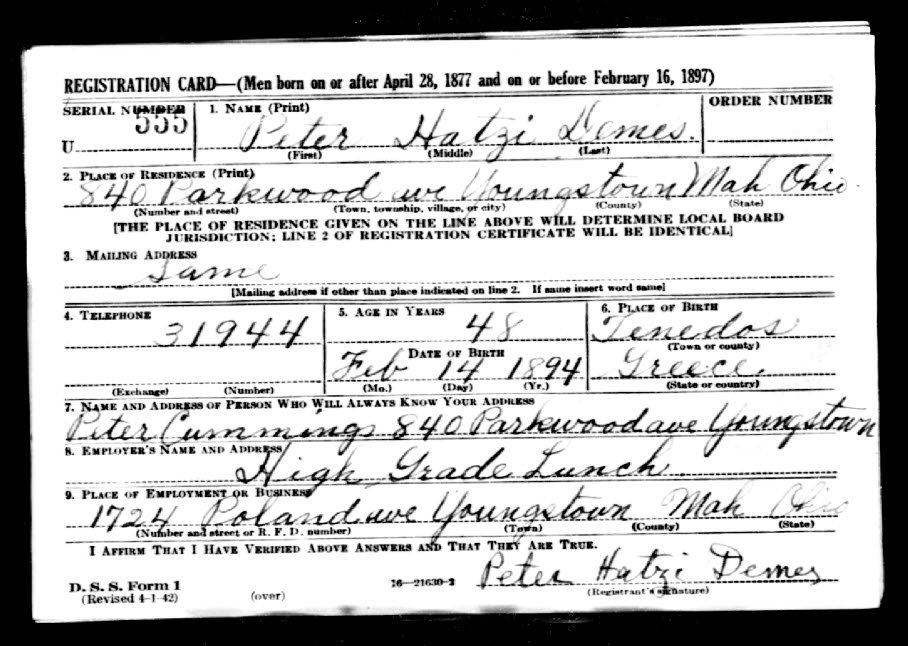 REGISTRATION CARD—(Men born on or after April 28, 1877 and on or before February 16, 1897)
SERIAL NUMBER 1. NAME (Print) ORDER NUMBER
U 555 Peter Hatzi Demes.
(First) (Middle) (Last)
2. PLACE OF RESIDENCE (Print)
840 Parkwood ave Youngstown Mah Ohio.
(Number and street) (Town, township, village, or city) (County) (State)
[THE PLACE OF RESIDENCE GIVEN ON THE LINE ABOVE WILL DETERMINE LOCAL BOARD
JURISDICTION; LINE 2 OF REGISTRATION CERTIFICATE WILL BE IDENTICAL]
3. MAILING ADDRESS
Same
[Mailing address if other than place indicated on line 2. If same insert word same]
4. TELEPHONE 5. AGE IN YEARS 6. PLACE OF BIRTH
31944 48 Tenedos
DATE OF BIRTH (Town or county)
Feb 14 1894 Greece.
(Exchange) (Number) (Mo.) (Day) (Yr.) (State or country)
7. NAME AND ADDRESS OF PERSON WHO WILL ALWAYS KNOW YOUR ADDRESS
Peter Cummings 840 Parkwood ave Youngstown
8. EMPLOYER'S NAME AND ADDRESS
High Grade Lunch
9. PLACE OF EMPLOYMENT OR BUSINESS
1724 Poland ave Youngstown Mah Ohio
(Number and street or R. F. D. number) (Town) (County) (State)
I AFFIRM THAT I HAVE VERIFIED ABOVE ANSWERS AND THAT THEY ARE TRUE.
Peter Hatzi Demes
D. S. S. Form 1 16—21630-2 (Registrant's signature)
(Revised 4-1-42) (over)